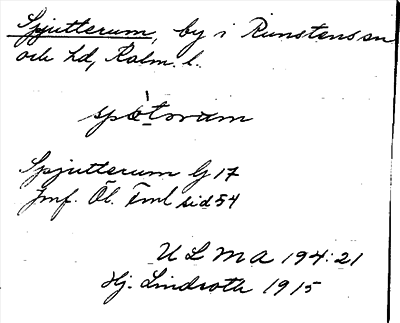 Spjutterum, by i Runstens sn
och hd, Kalm. l.
spòtorum
Spjutterum G 17
Jmf. Öl. Fml sid 54
ULMA 194:21
Hj. Lindroth 1915